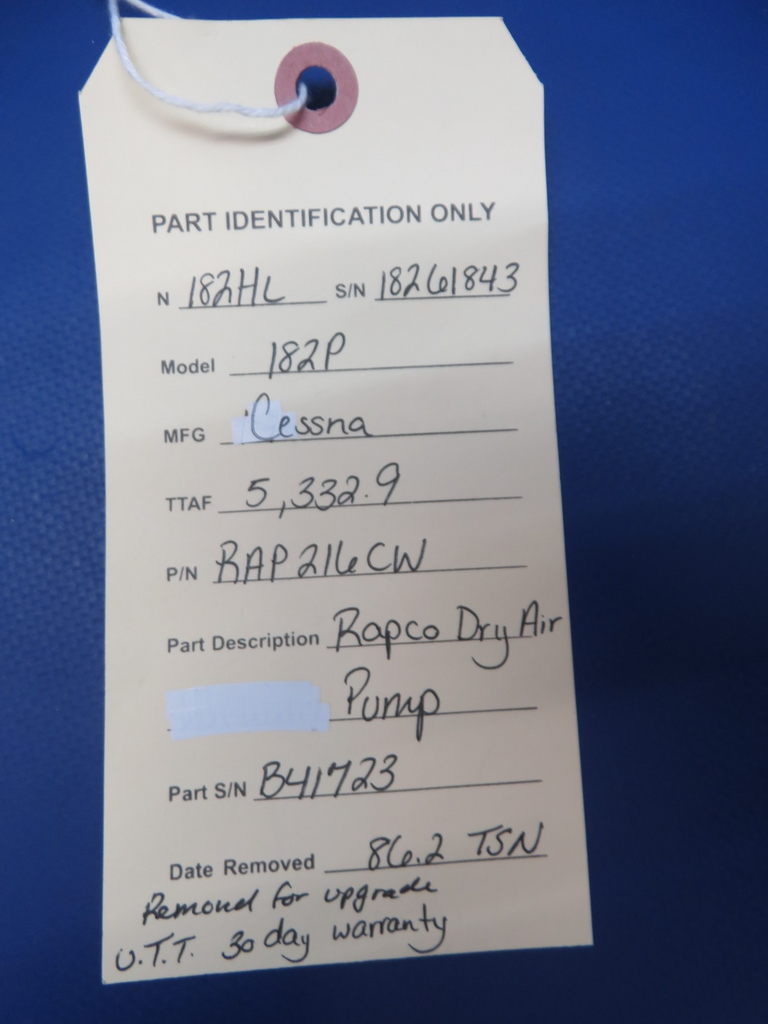 PART IDENTIFICATION ONLY
N 182HL S/N 18261843
Model 182P
MFG Cessna
TTAF 5,332.9
P/N RAP216CW
Part Description Rapco Dry Air
Pump
Part S/N B41723
Date Removed 86.2 TSN
Removed for upgrade
U.T.T. 30 day warranty